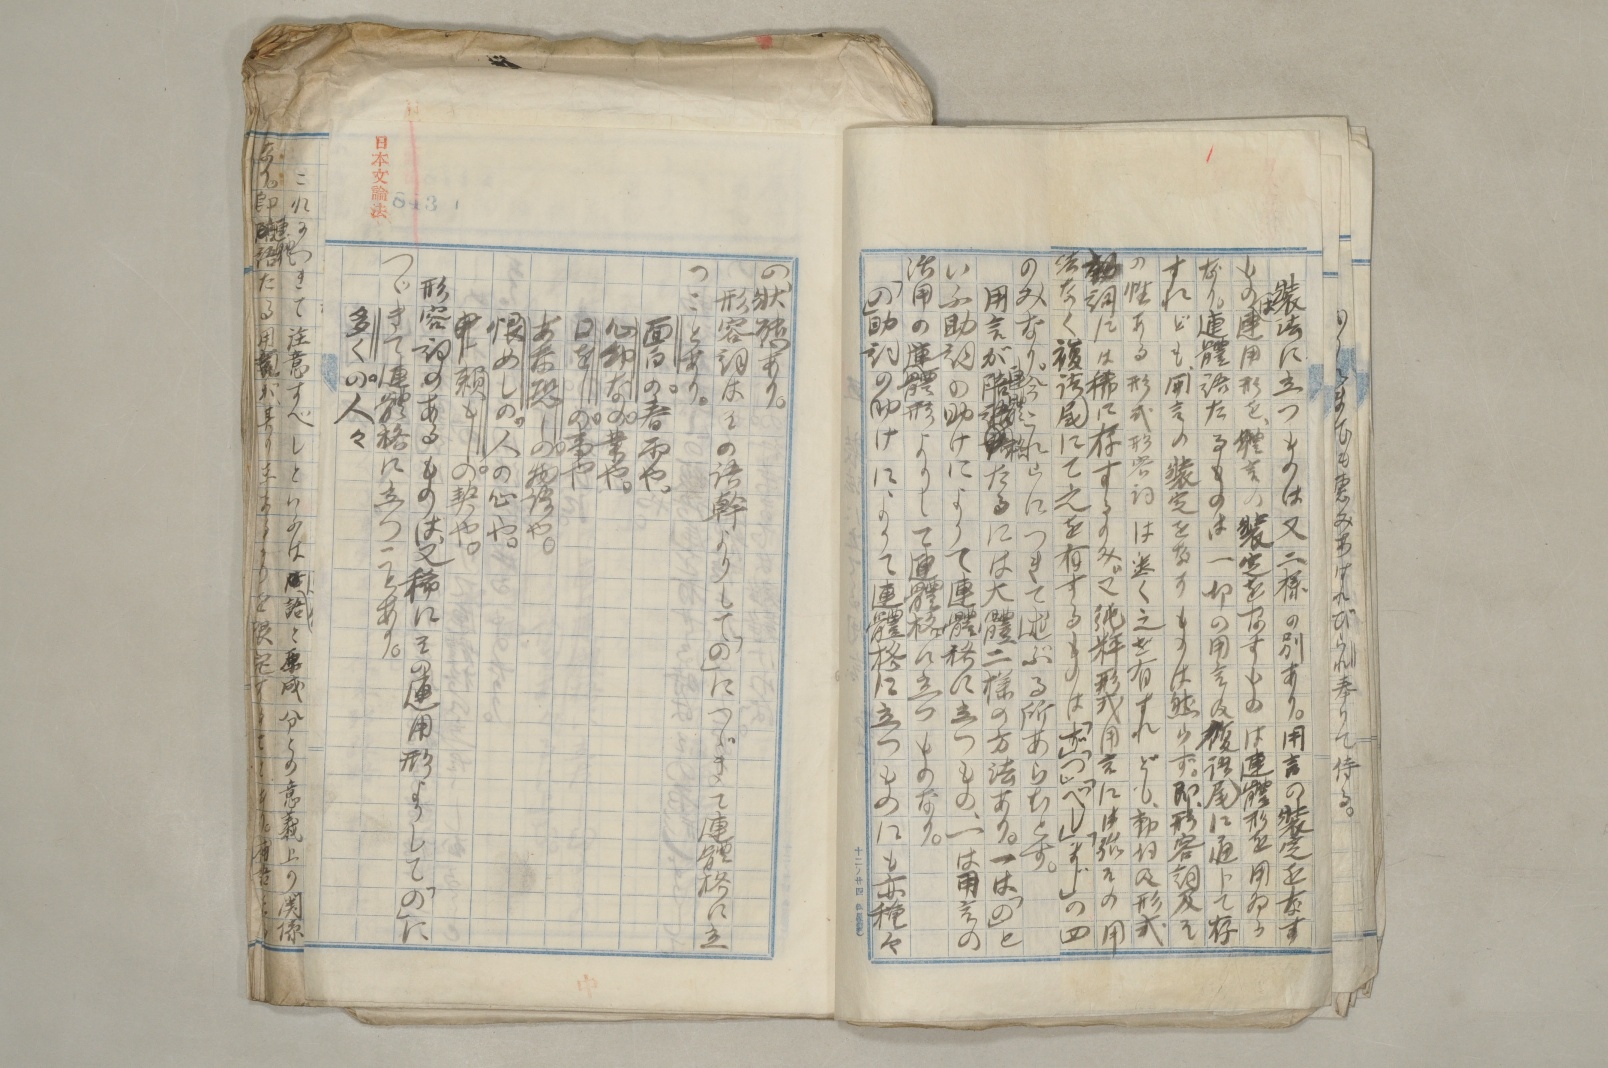 装法に立つものは又二様の別あり。用言の装定をなす
もの連用形を、體言の装定をなすものは連體形を用ゐる
なり。連體語たるものは一切の用言及複語尾に通じて存
すれども、用言の装定をなすものは然らず。即形容詞及そ
の性ある形式形容詞は悉く之を有すれども、動詞及形式
動詞には稀に存するのみ。又純粋形式用言には
法なく複語尾にて之を有するものは「ず」「つ」「べし」「まじ」の四
のみなり。今これらにつきて述ぶる所あらむとす。
用言が連體格たるには大體二様の方法あり。一は「の」と
いふ助詞の助けによりて連體格に立つもの、一は用言の
活用の連體形よりして連體格に立つものなり。
「の」助詞の助けによりて連體格に立つものにも亦種々
の状態あり。
形容詞はその語幹よりして「の」につゞきて連體格に立
つことあり。
面白の春雨や。
心細なの業や。
口をしの事や。
あな恐しの物語や。
恨めしの人の心や。
頼もしの契や。
形容詞のあるものは又稀にその連用形よりして「の」に
つゞきて連體格に立つことあり。
多くの人々
これにつきて注意すべしといふは
成分との意義上の関係
日本文論法
843